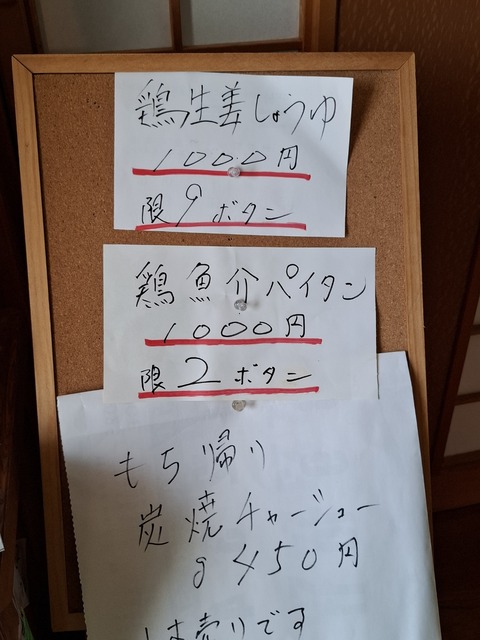 鶏生姜しょうゆ
1000円
限9ボタン
鶏魚介パイタン
1000円
限2ボタン
もち帰り
炭焼チャーシュー
g450円
売りです